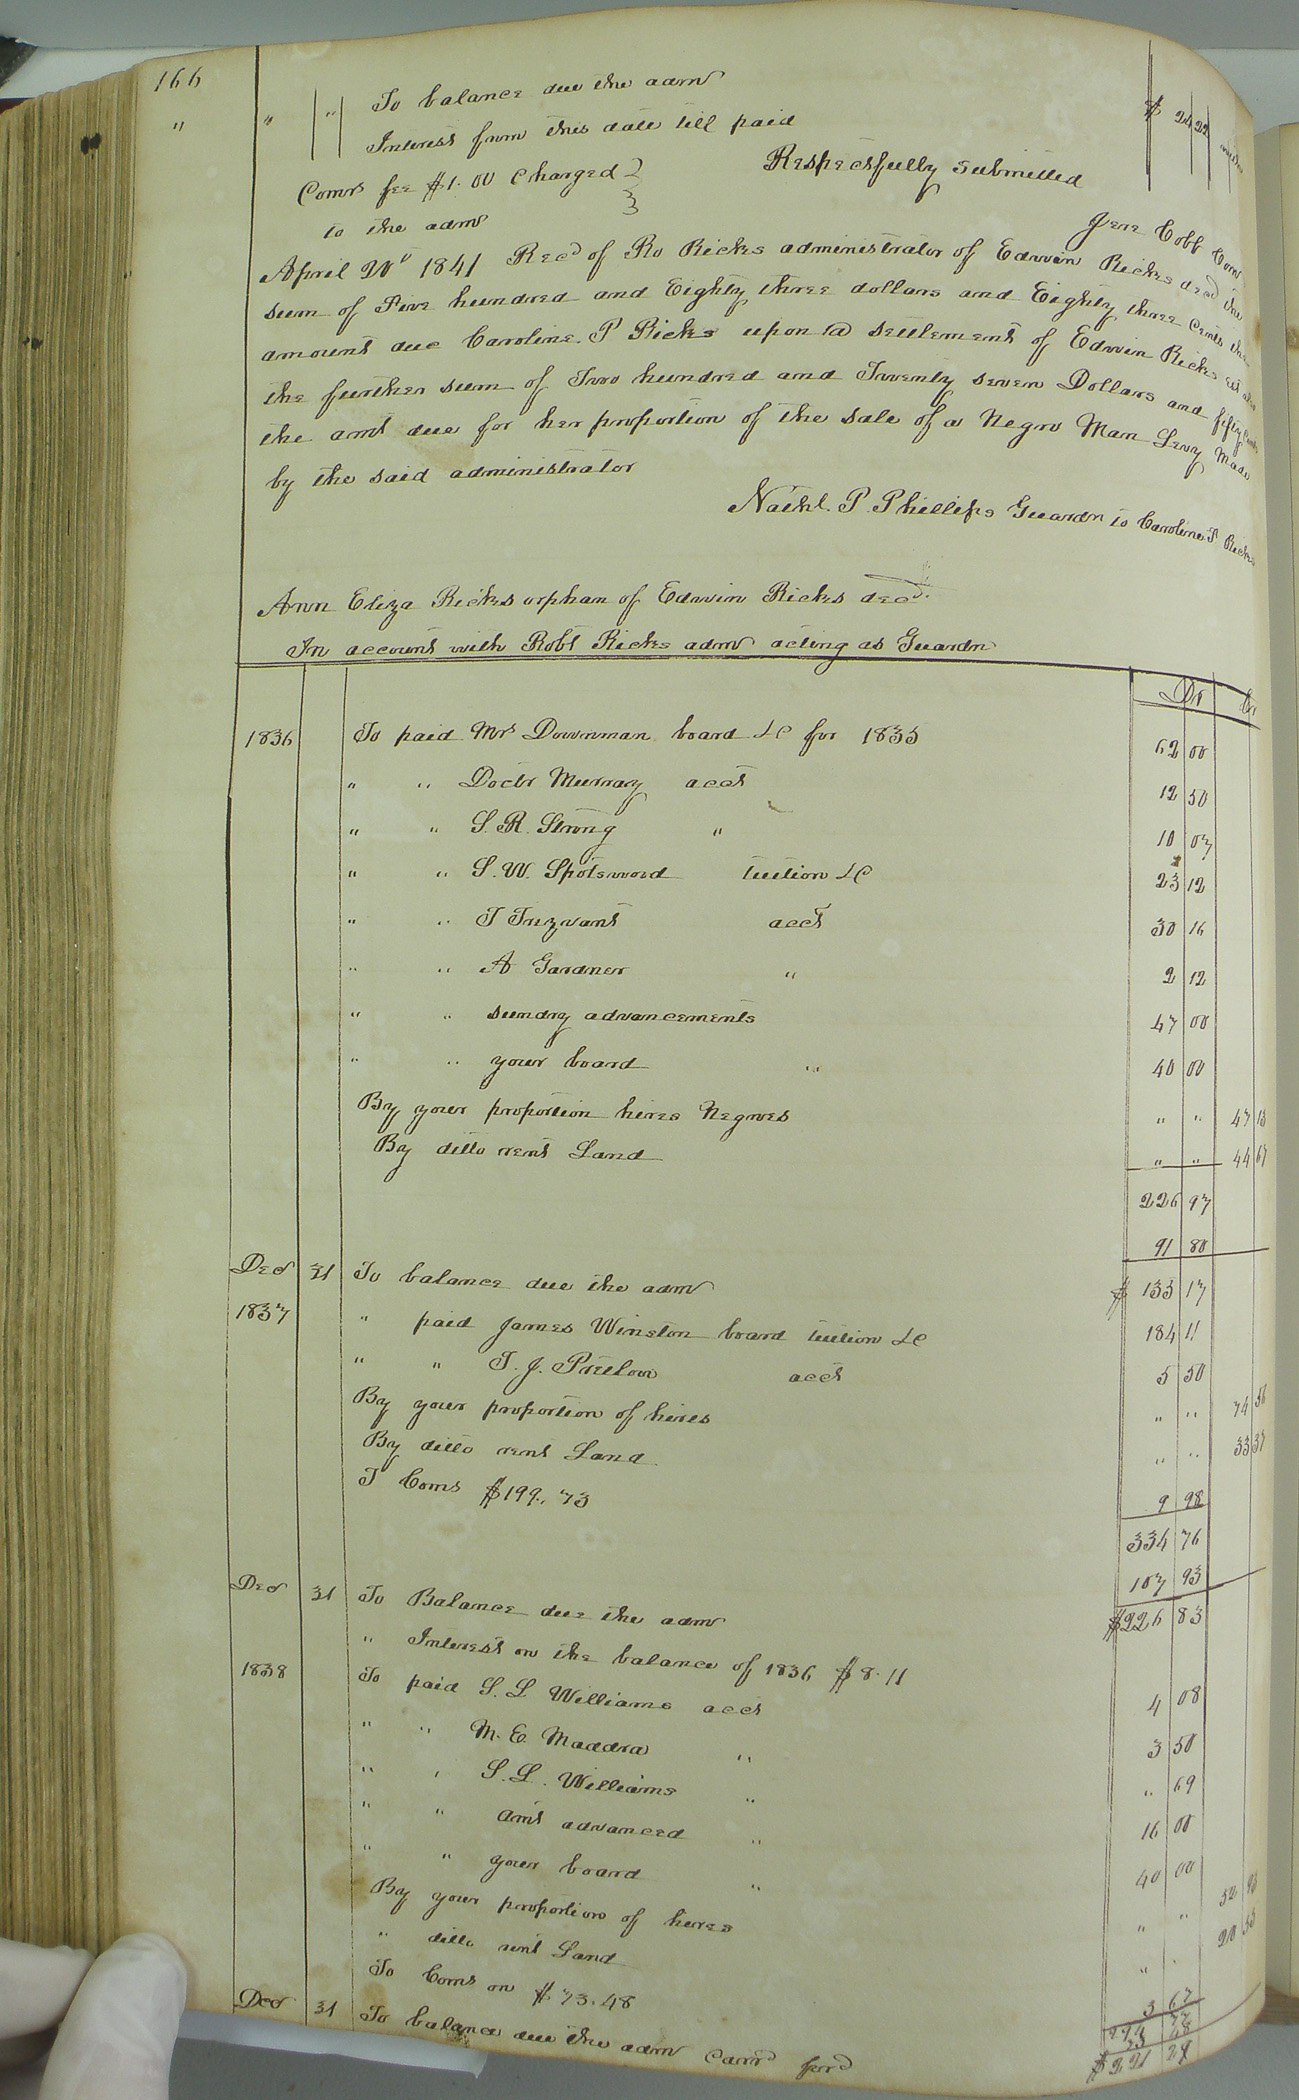 166
" " " To balance due the admr $ 24 22
Interest from this date till paid
Respectfully submitted
Comrs fee $1.00 Charged
to the admr
Jere Cobb Comr
April 20th 1841 Recd of Ro Ricks administrator of Edwin Ricks decd the
sum of Five hundred and Eighty three dollars and Eighty three Cents the
amount due Caroline P Ricks upon a settlement of Edwin Ricks est also
the further sum of Two hundred and Twenty seven Dollars and fifty Cents
the amt due for her proportion of the sale of a Negro Man Levy Made
by the said administrator
Nathl. P. Phillips Guardn to Caroline P Ricks
Ann Eliza Ricks orphan of Edwin Ricks decd.
In account with Robt Ricks admr acting as Guardn
Dr Cr
1836 To paid Mrs Downman board &C for 1835 62 00
" " Doctr Murray acct 12 50
" " S. R. Strong " 10 07
" " S. W. Spotswood tuition &C 23 12
" " T Trezvant acct 30 16
" " A Gardner " 2 12
" " sundry advancements 47 00
" " your board " 40 00
By your proportion hires Negroes " " 47 13
By ditto rent Land " " 44 67
226 97
91 80
Decr 31 To balance due the admr $ 135 17
1837 " paid James Winston board tuition &C 184 11
" " T. J. Pretlow acct 5 50
By your proportion of hires " " 74 56
By ditto rent Land " " 33 37
T Coms $199.73 9 98
334 76
107 93
Decr 31 To Balance due the admr $226 83
" Interest on the balance of 1836 $8.11
1838 To paid S. L Williams acct 4 08
" " M. E. Maddra " 3 50
" " S. L. Williams " " 69
" " amt advanced " 16 00
" " your board " 40 00
By your proportion of hires " " 52
" ditto rent Land " " 20
To Coms on $73.48 3 67
Decr 31 To balance due the admr Carrd forrd $221 29